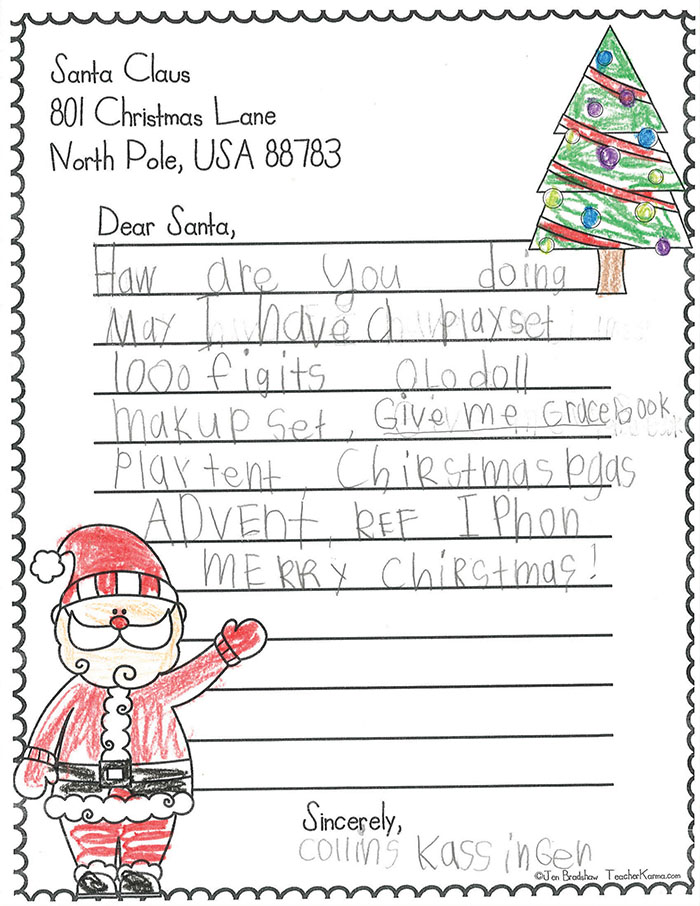 Santa Claus
801 Christmas Lane
North Pole, USA 88783
Dear Santa,
Haw are you doing
May I have a playset
1000 figits OLO doll
makup set, Give me Grace book
Play tent, Chirstmas bgas
ADVENt, REF IPhon
MERRY ChiRstmas!
Sincerely,
Collins Kassingen
©Jen Bradshaw TeacherKarma.com